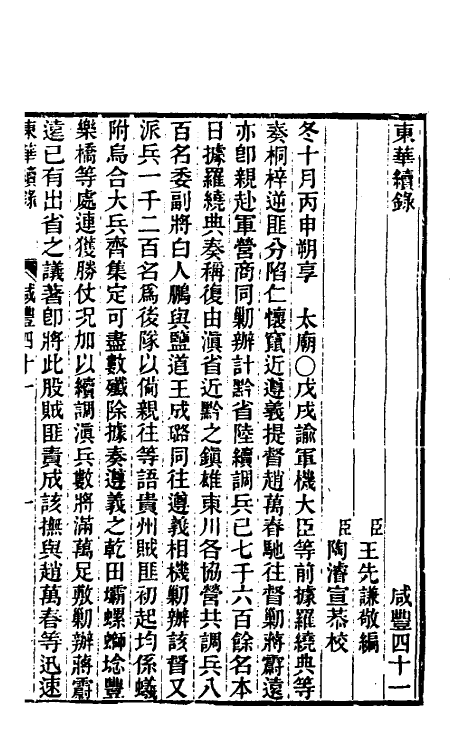 東華續錄　咸豐四十一
臣王先謙敬編
臣陶濬宣恭校
冬十月丙申朔享　太廟○戊戌諭軍機大臣等前據羅繞典等
奏桐梓逆匪分陷仁懷竄近遵義提督趙萬春馳往督勦蔣霨遠
亦卽親赴軍營商同勦辦計黔省陸續調兵已七千六百餘名本
日據羅繞典奏稱復由滇省近黔之鎭雄東川各協營共調兵八
百名委副將白人鵬與鹽道王成璐同往遵義相機勦辦該督又
派兵一千二百名爲後隊以備親往等語貴州賊匪初起均係蟻
附烏合大兵齊集定可盡數殲除據奏遵義之乾田壩螺螄埝豐
樂橋等處連獲勝仗况加以續調滇兵數將滿萬足敷勦辦蔣霨
遠已有出省之議著卽將此股賊匪責成該撫與趙萬春等迅速
東華續錄　咸豐四十一　一